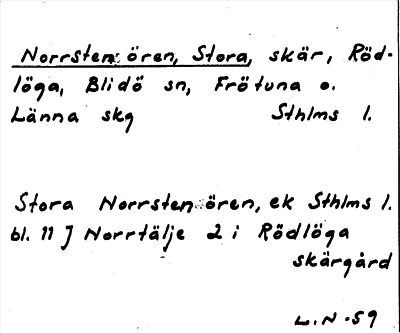 Norrstensören, Stora, skär, Röd-
löga, Blidö sn, Frötuna o.
Länna skg Sthlms l.
Stora Norrstensören, ek Sthlms l.
bl. 11 J Norrtälje 2 i Rödlöga
skärgård
L.N-59